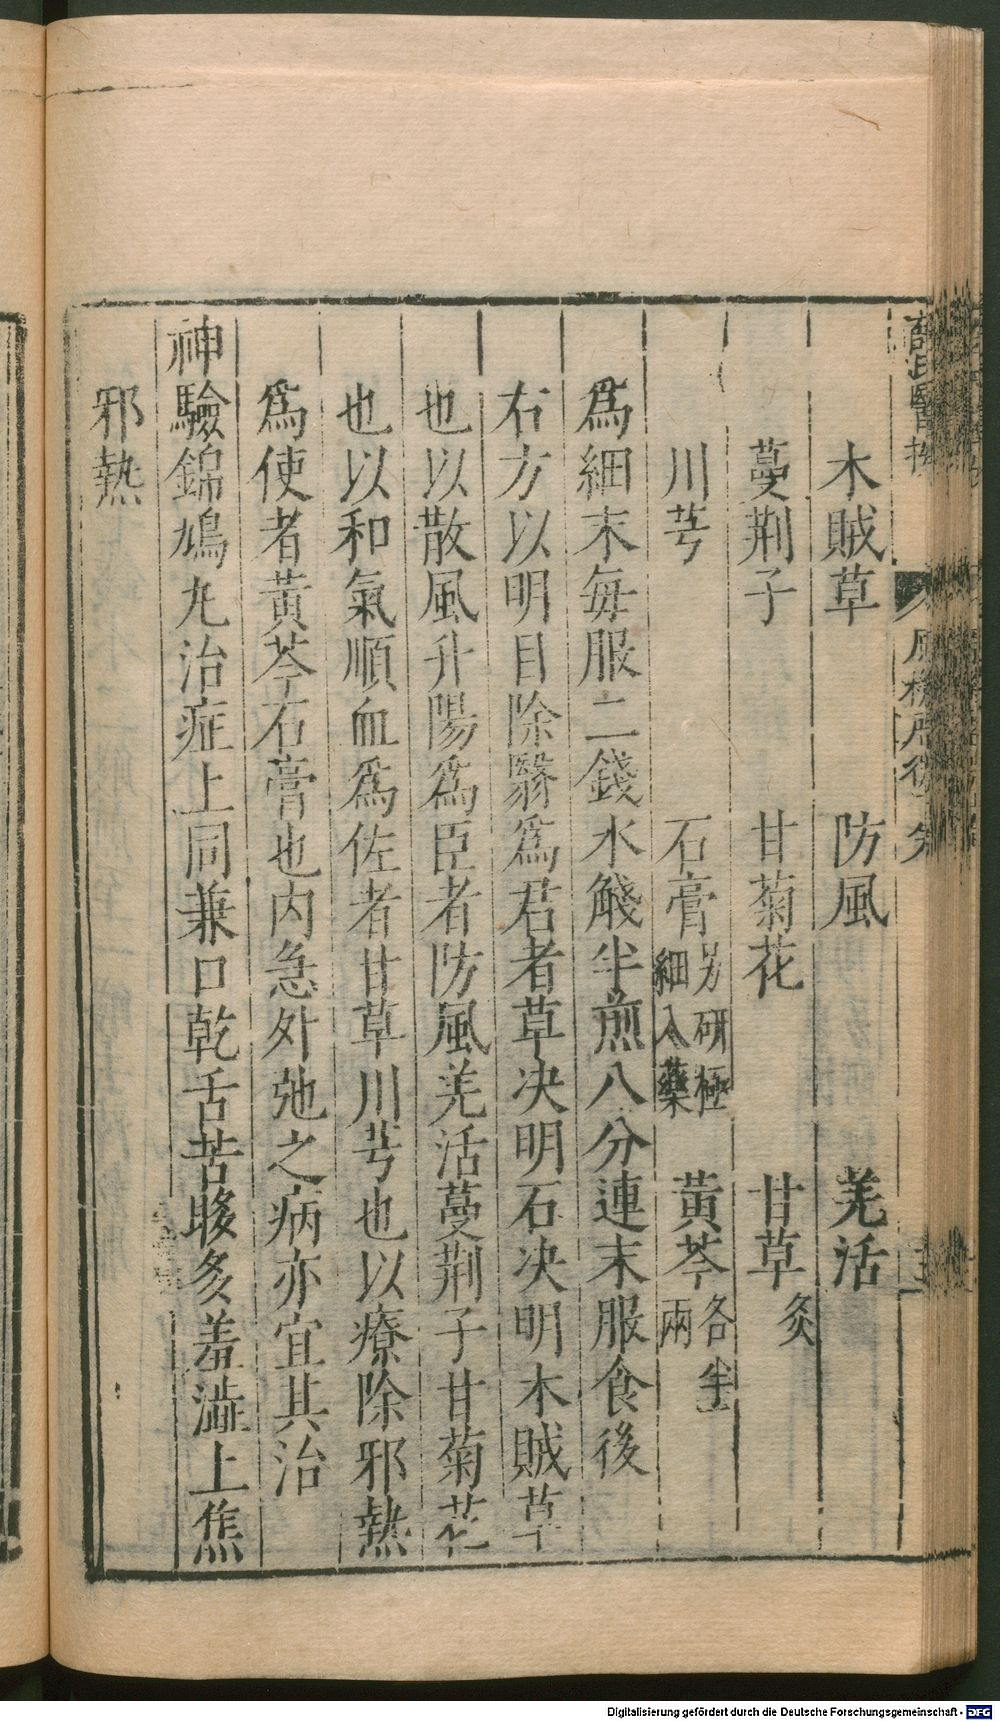 木賊草 防風 羌活
蔓荆子 甘菊花 甘草炙
川芎 石膏另研極細入藥 黃芩各半兩
爲細末毎服二錢水䤬半煎八分連末服食後
右方以明目除翳爲君者草决明石决明木賊草
也以散風升陽爲臣者防風羌活蔓荆子甘菊花
也以和氣順血爲佐者甘草川芎也以療除邪熱
爲使者黃芩石膏也内急外弛之病亦宜其治
神驗錦鳩丸治症上同兼口乾舌苦眵多羞澁上焦
邪熱
Digitalisierung gefördert durch die Deutsche Forschungsgemeinschaft - DFG